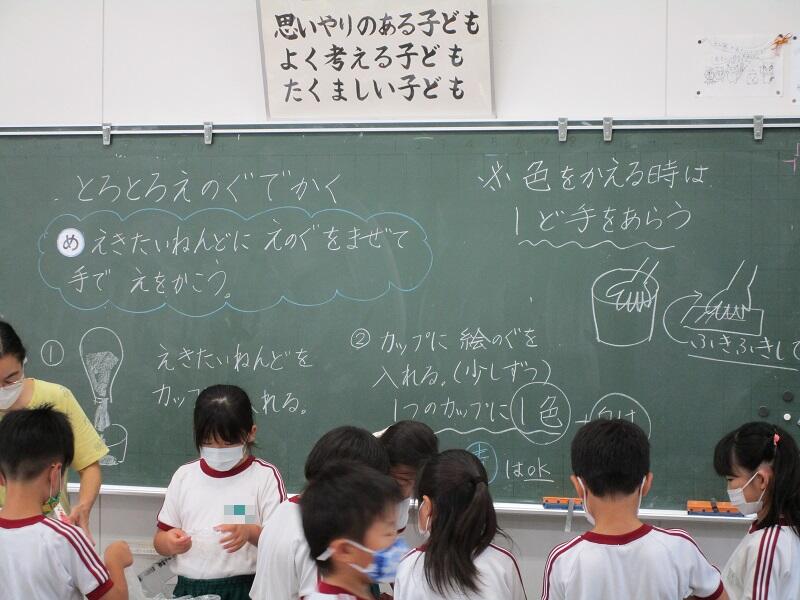 思いやりのある子ども
よく考える子ども
たくましい子ども
とろとろえのぐでかく
め えきたいねんどに えのぐをまぜて
手で えをかこう。
① えきたいねんどを
カップ 入れる。
② カップに 絵のぐを
入れる。(少しずつ)
1つのカップに 1色
はok
※ 色をかえる時は
1ど手をあらう
ふきふきして